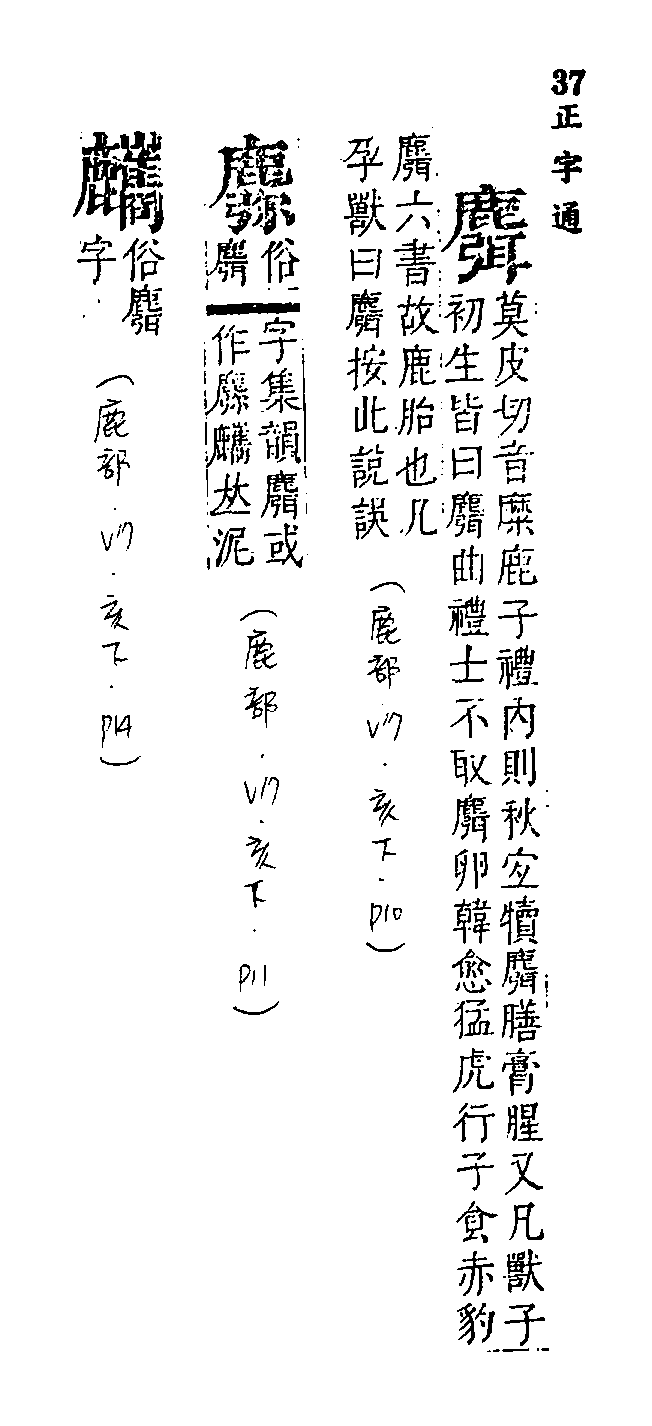 37 正字通
麛
莫皮切音糜鹿子禮內則秋宐犢麛膳膏腥又凡獸子
初生皆曰麛曲禮士不取麛卵韓愈猛虎行子食赤豹
麛六書故鹿胎也凡
孕獸曰麛按此說誤
(鹿部.V17.亥下.p10)
俗
麛
字集韻麛或
作𠀤泥
(鹿部.V17.亥下.p11)
俗麛
字
(鹿部.V17.亥下.p14)